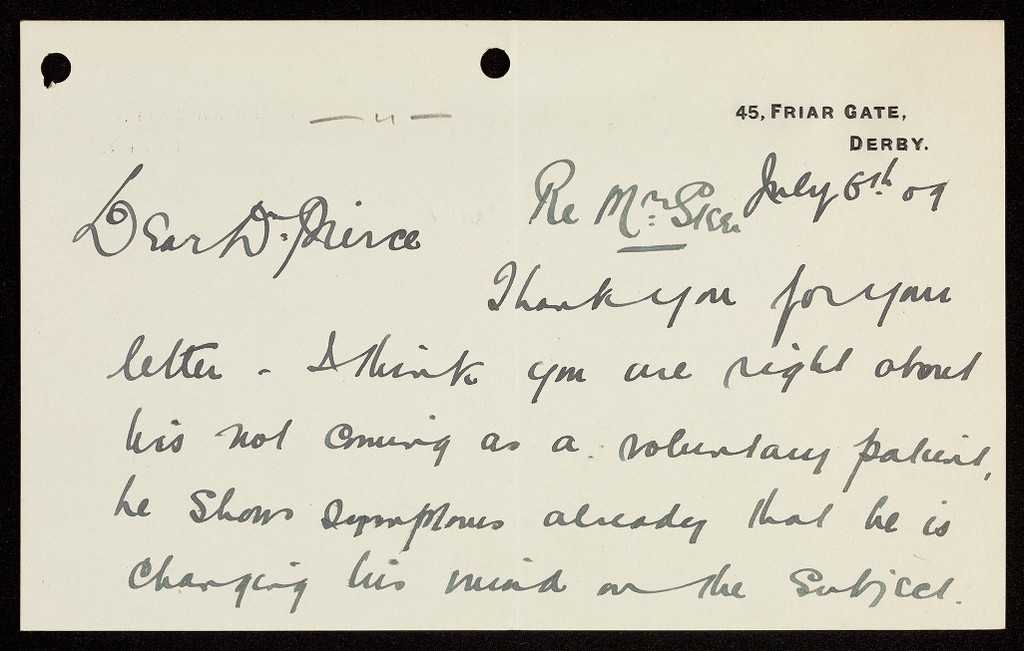 — 4 —
45, FRIAR GATE,
DERBY.
Re Mr. July 6th 09
Dear Dr. Pierce
Thank you for your
letter - I think you are right about
his not coming as a voluntary patient,
he shows symptoms already that he is
changing his mind on the subject.